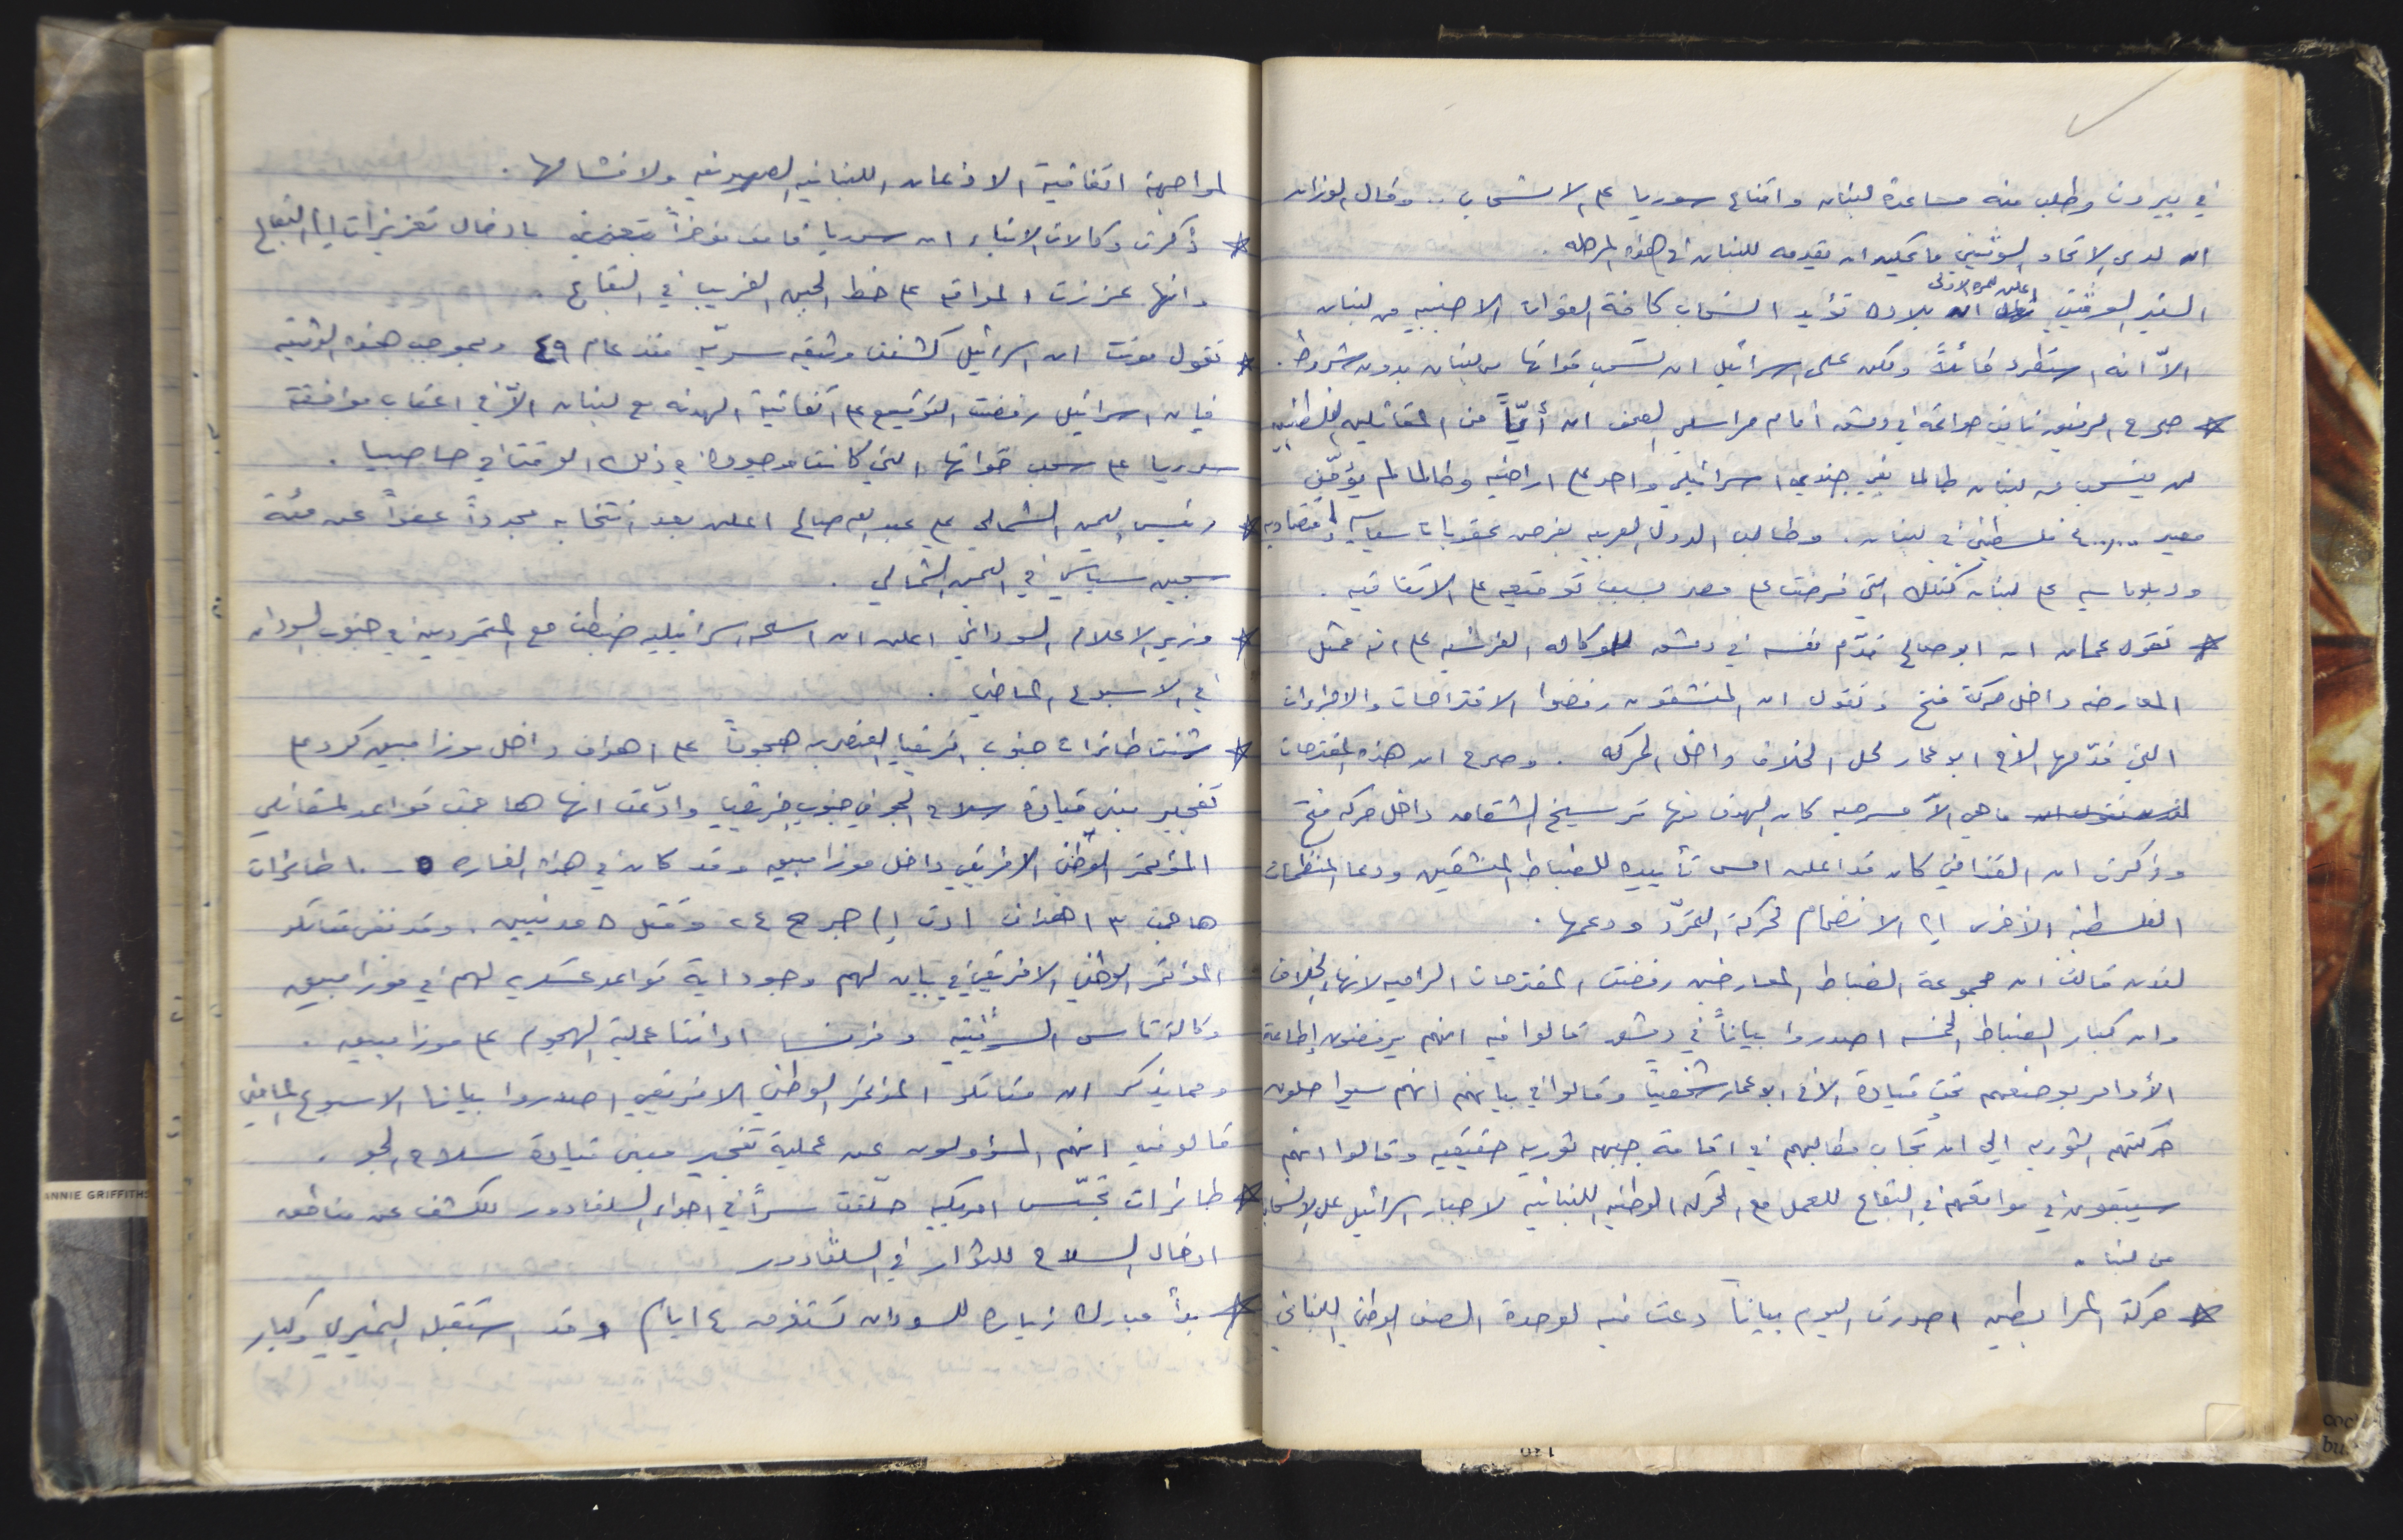 في بيروت وطلب منه مساعدة لبنان واقناع سوريا على الانسحاب .. وقال الوزان
ان لدى الاتحاد السوفييتي ما يمكنه ان يقدمه للبنان في هذه المرحلة .
السفير السوفييتي اعلن للمرة الاولى ان بلاده تؤيد انسحاب كافة القوات الاجنبيه من لبنان
الاّ انه استطرد قائلاً ولكن على اسرائيل ان تسحب قواتها من لبنان بدون شروط .
* صرح الرفيق نايف حواتمة في دمشق أمام مراسلي الصحف ان أيّاً من المقاتلين الفلسطينيين
لن ينسحب من لبنان طالما بقي جندي اسرائيلي واحد على اراضيه وطالما لم يؤمّن
مصير فلسطيني في لبنان . وطالب الدول العربيه بفرض عقوبات سياسيه واقتصاديه
ودبلوماسيه على لبنان كتلك التي فرضت على مصر بسبب توقيعه على الاتفاقيه .
* تقول عمان ان ابو صالح قدّم نفسه في دمشق للوكاله الفرنسيه على انه ممثل
المعارضه داخل حركة فتح وتقول ان المنشقون رفضوا الاقتراحات والاجراءات
التي قدّمها الأخ ابو عمار لحل الخلاف داخل الحركه . وصرح ان هذه المقترحات
ما هي الاّ مسرحيه كان الهدف منها ترسيخ الشقاق داخل حركه فتح
وذكرت ان القذافي كان قد اعلن امس تأييده للضباط المنشقين ودعا المنظمات
الفلسطينيه الأخرى الى الانضمام لحركة التمرّد ودعمها .
لندن قالت ان مجموعة الضباط المعارضين رفضت المقترحات الراميه لانهاء الخلاف
وان كبار الضباط الخمسه اصدروا بياناً في دمشق قالوا فيه انهم يرفضون إطاعة
الأوامر بوضعهم تحت قيادة الأخ ابو عمار شخصياً وقالوا في بيانهم انهم سيواصلون
حركتهم الثوريه الى ان تُجاب مطالبهم في اقامة جبهه ثوريه حقيقيه وقالوا انهم
سيبقون في مواقعهم في البقاع للعمل مع الحركه الوطنيه اللبنانيه لاجبار اسرائيل على الانسحاب
من لبنان
* حركة المرابطين اصدرت اليوم بياناً دعت فيه لوحدة الصف الوطني اللبناني
لمواجهة اتفاقية الاذعان اللبنانيه الصهيونيه ولافشالها .
* ذكرت وكالات الانباء ان سوريا قامت مؤخراً بادخال تعزيزات الى البقاع
وانها عززت المواقع على خط الجبهه الغربيه في البقاع .
* تقول مونت ان اسرائيل كشفت وثيقه سريّه منذ عام ٤٩ وبموجب هذه الوثيقه
فإن اسرائيل رفضت التوقيع على اتفاقية الهدنه مع لبنان الاّ في اعقاب موافقة
سوريا على سحب قواتها التي كانت موجوده في ذلك الوقت في حاصبيا .
* رئيس اليمن الشمالي علي عبد الله صالح اعلن بعد انتخابه مجدداً عفواً عن مئة
سجين سياسي في اليمن الشمالي .
* وزير الاعلام السوداني اعلن ان اسلحه اسرائيليه ضبطت مع المتمردين في جنوب السودان
في الاسبوع الماضي .
* شنت طائرات جنوب افريقيا العنصريه هجوماً على اهداف داخل موزامبيق كرد على
تفجير مبنى قيادة سلاح الجو في جنوب افريقيا وادّعت انها هاجمت قواعد لمقاتلي
المؤتمر الوطني الافريقي داخل موزامبيق وقد كان في هذه الغاره ٥ - ١٠ طائرات
هاجمت ٣ اهداف ادت الى جرح ٢٤ وقتل ٥ مدنيين . وقد نفى مقاتلو
المؤتمر الوطني الافريقي في بيان لهم وجود اية قواعد عسكريه لهم في موزامبيق
وكالة تاس السوفييتيه وفرنسا ادانتا عملية الهجوم على موزامبيق .
ومما يذكر ان مقاتلو المؤتمر الوطني الافريقي اصدروا بيانا الاسبوع الماضي
قالو فيه انهم المسؤولون عن عملية تفجير مبنى قيادة سلاح الجو .
* طائرات تجسّس امريكيه حلّقت سرّاً في اجواء السلفادور للكشف عن مناطق
ادخال السلاح للثوار في السلفادور
* بدأ مبارك زياره للسودان تستغرق ٤ ايام وقد استقبله النميري وكبار
ANNIE GRIFFITHS